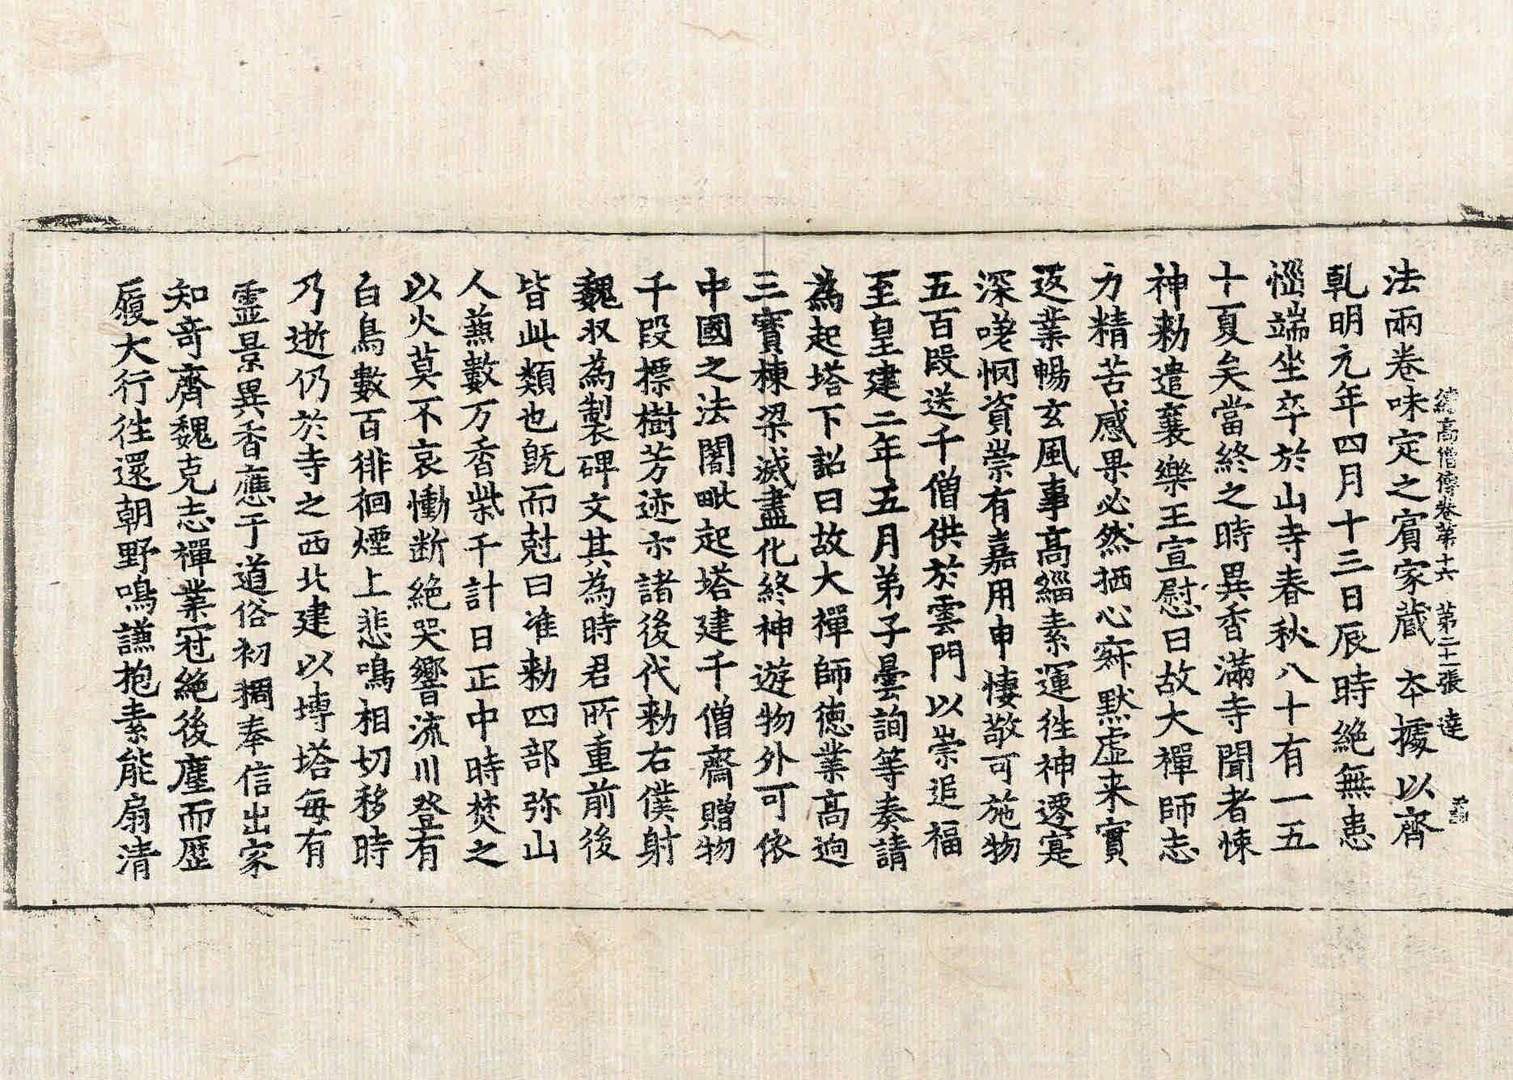 續高僧傳卷第十六 第二十一張 達
法兩卷味定之賔家蔵夲據以齊
乹明元年四月十三日辰時絶無患
惱端坐卒於山寺春秋八十有一五
十夏矣當終之時異香滿寺聞者悚
神勑遣襄樂王宣慰曰故大禪師志
力精苦感果必然栖心寂黙虚来實
返業暢玄風事髙緇素運徃神遷寔
深嗟惘資崇有嘉用申悽敬可施物
五百段送千僧供於雲門以崇追福
至皇建二年五月弟子曇詢等奏請
為起塔下詔曰故大禪師德業髙逈
三寳棟梁滅盡化終神遊物外可依
中國之法闍毗起塔建千僧齋贈物
千段摽樹芳迹示諸後代勑右僕射
魏収為製碑文其為時君所重前後
皆此類也旣而尅日准勑四部弥山
人兼數万香柴千計日正中時焚之
以火莫不哀慟断絶哭響流川登有
白鳥數百徘徊煙上悲鳴相切移時
乃逝仍於寺之西北建以塼塔每有
靈景異香應于道俗初稠奉信出家
知奇齊魏克志禪業冠絶後塵而歴
履大行徃還朝野鳴謙抱素能扇清